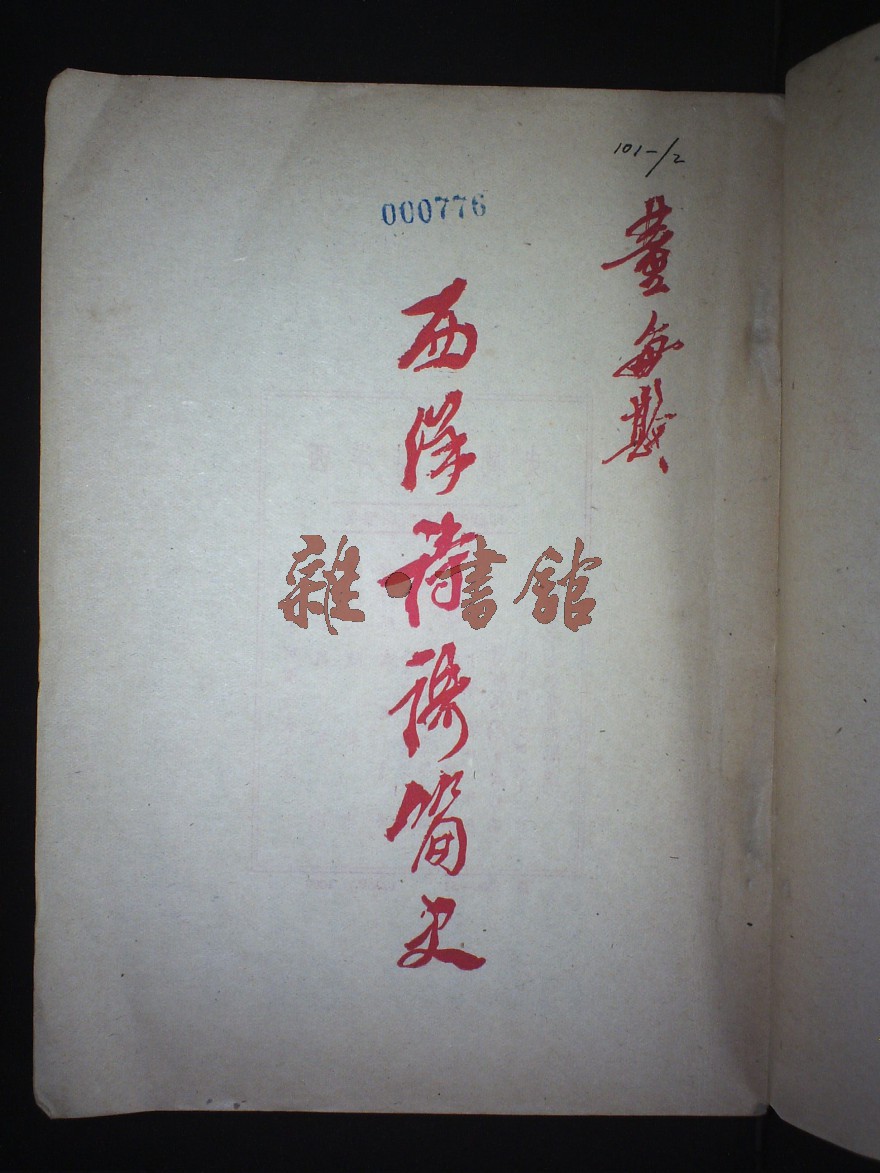 101-/2
000776
董每戡
西洋詩謌简史
雜·書館